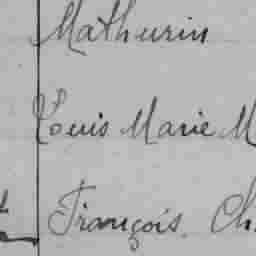 Mathurin
Louis Marie M
François. Ch